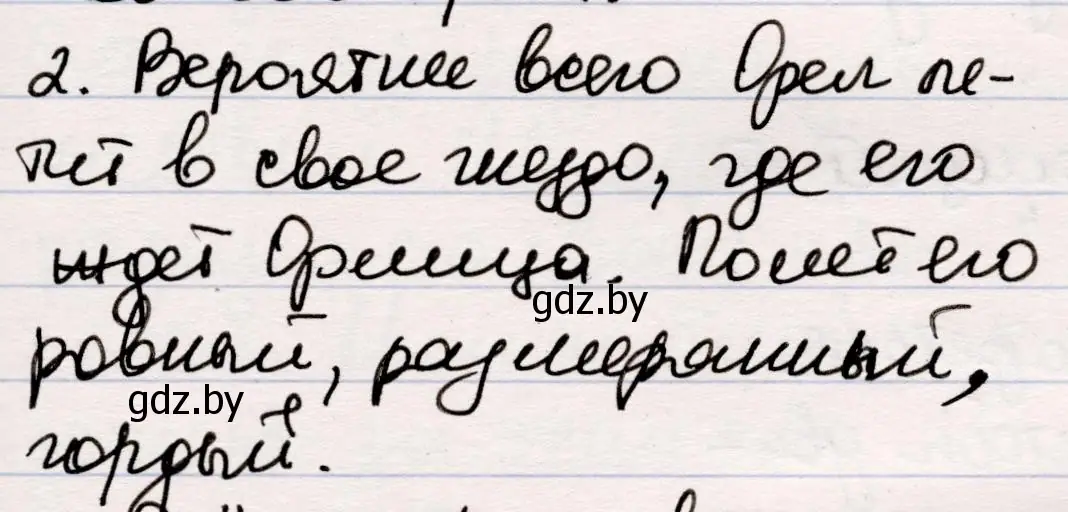 2. Вероятнее всего Орел ле-
тит в свое гнездо, где его
ждет Орлица. Полет его
gdz.by
ровный, размеранный,
gdz.by
гордый.